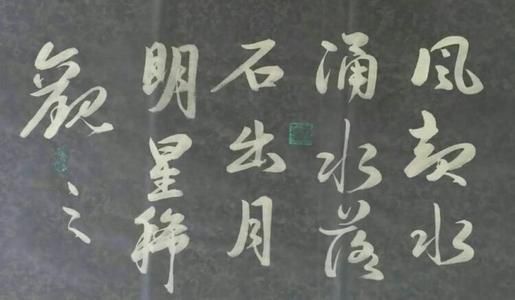 風起水
涌水落
石出月
明星稀
觀之